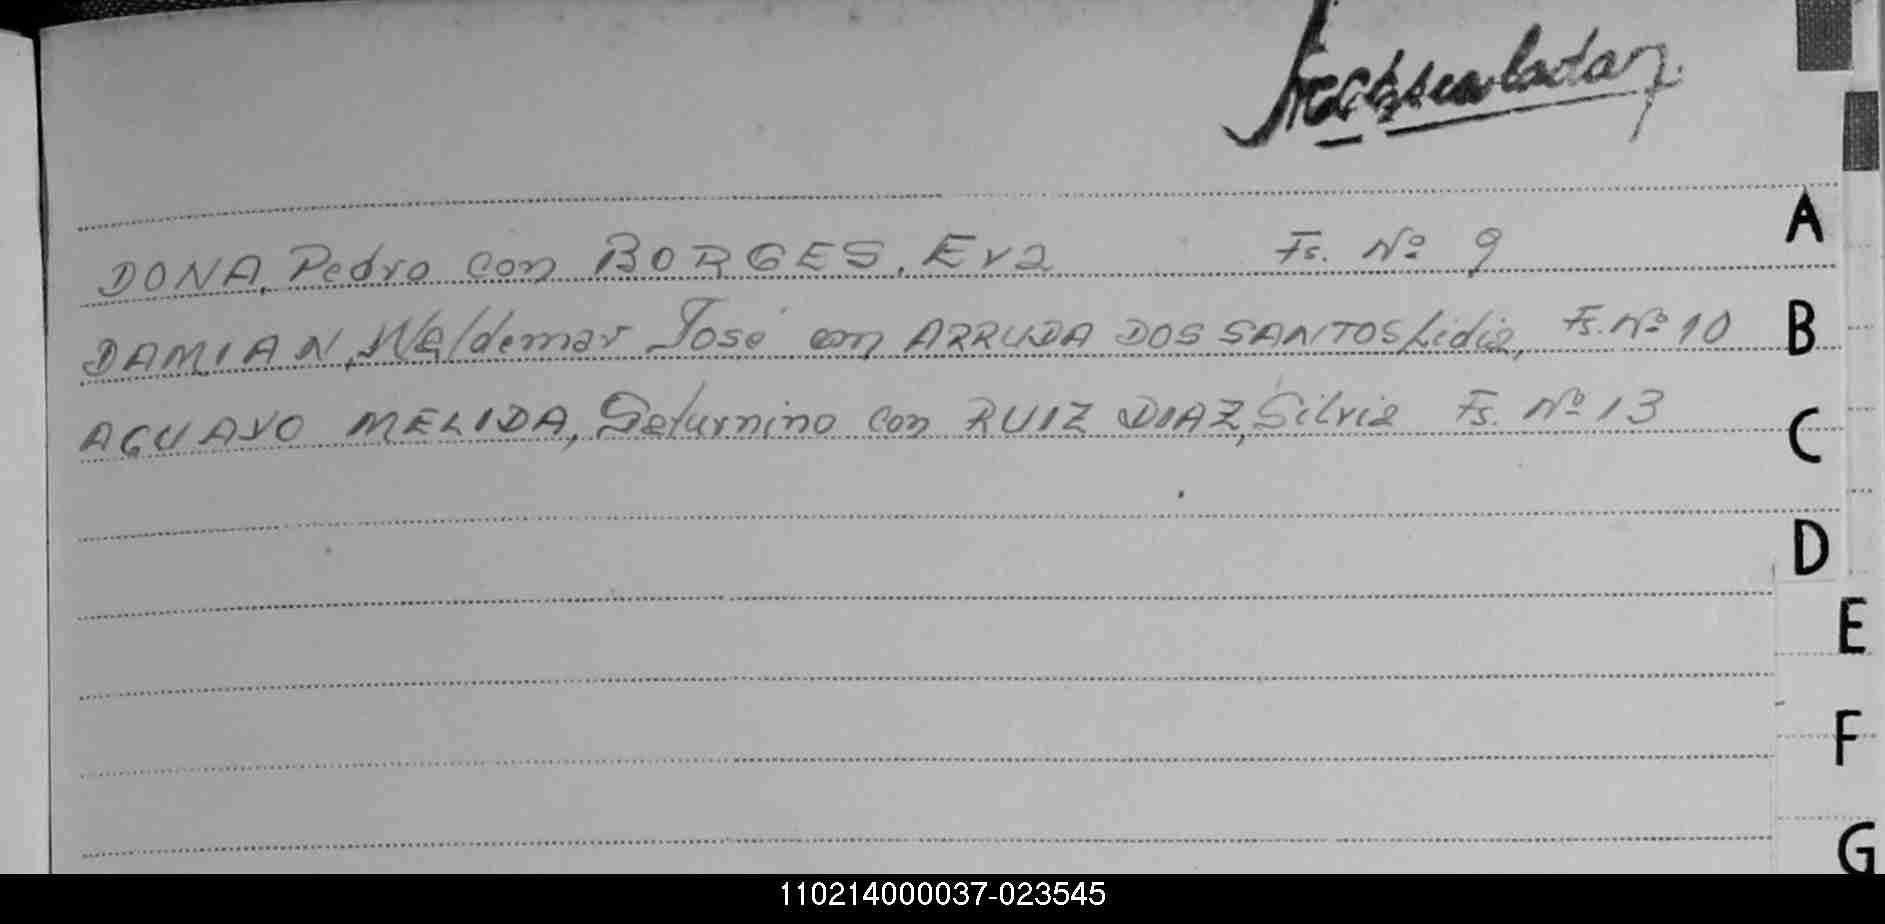 DONA, Pedro con BORGES, Eva Fs. Nº 9
DAMIAN, Waldemar José con ARRUDA DOS SANTOS Lidia, Fs. Nº 10
AGUAYO MELIDA, Saturnino con RUIZ DIAZ, Silvia Fs. Nº 13
A
B
C
D
E
F
G
110214000037-023545